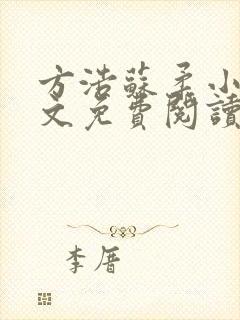 方浩蘇柔小
文免費閱讀
李厝